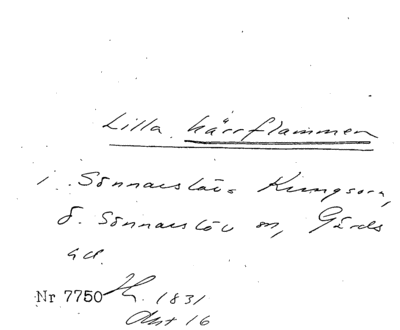 Lilla Kärrflammen
i. Sönnarslövs Kungsora,
ö. Sönnarslöv sn, Gärds
hd.
Nr 7750 1831
Akt 16